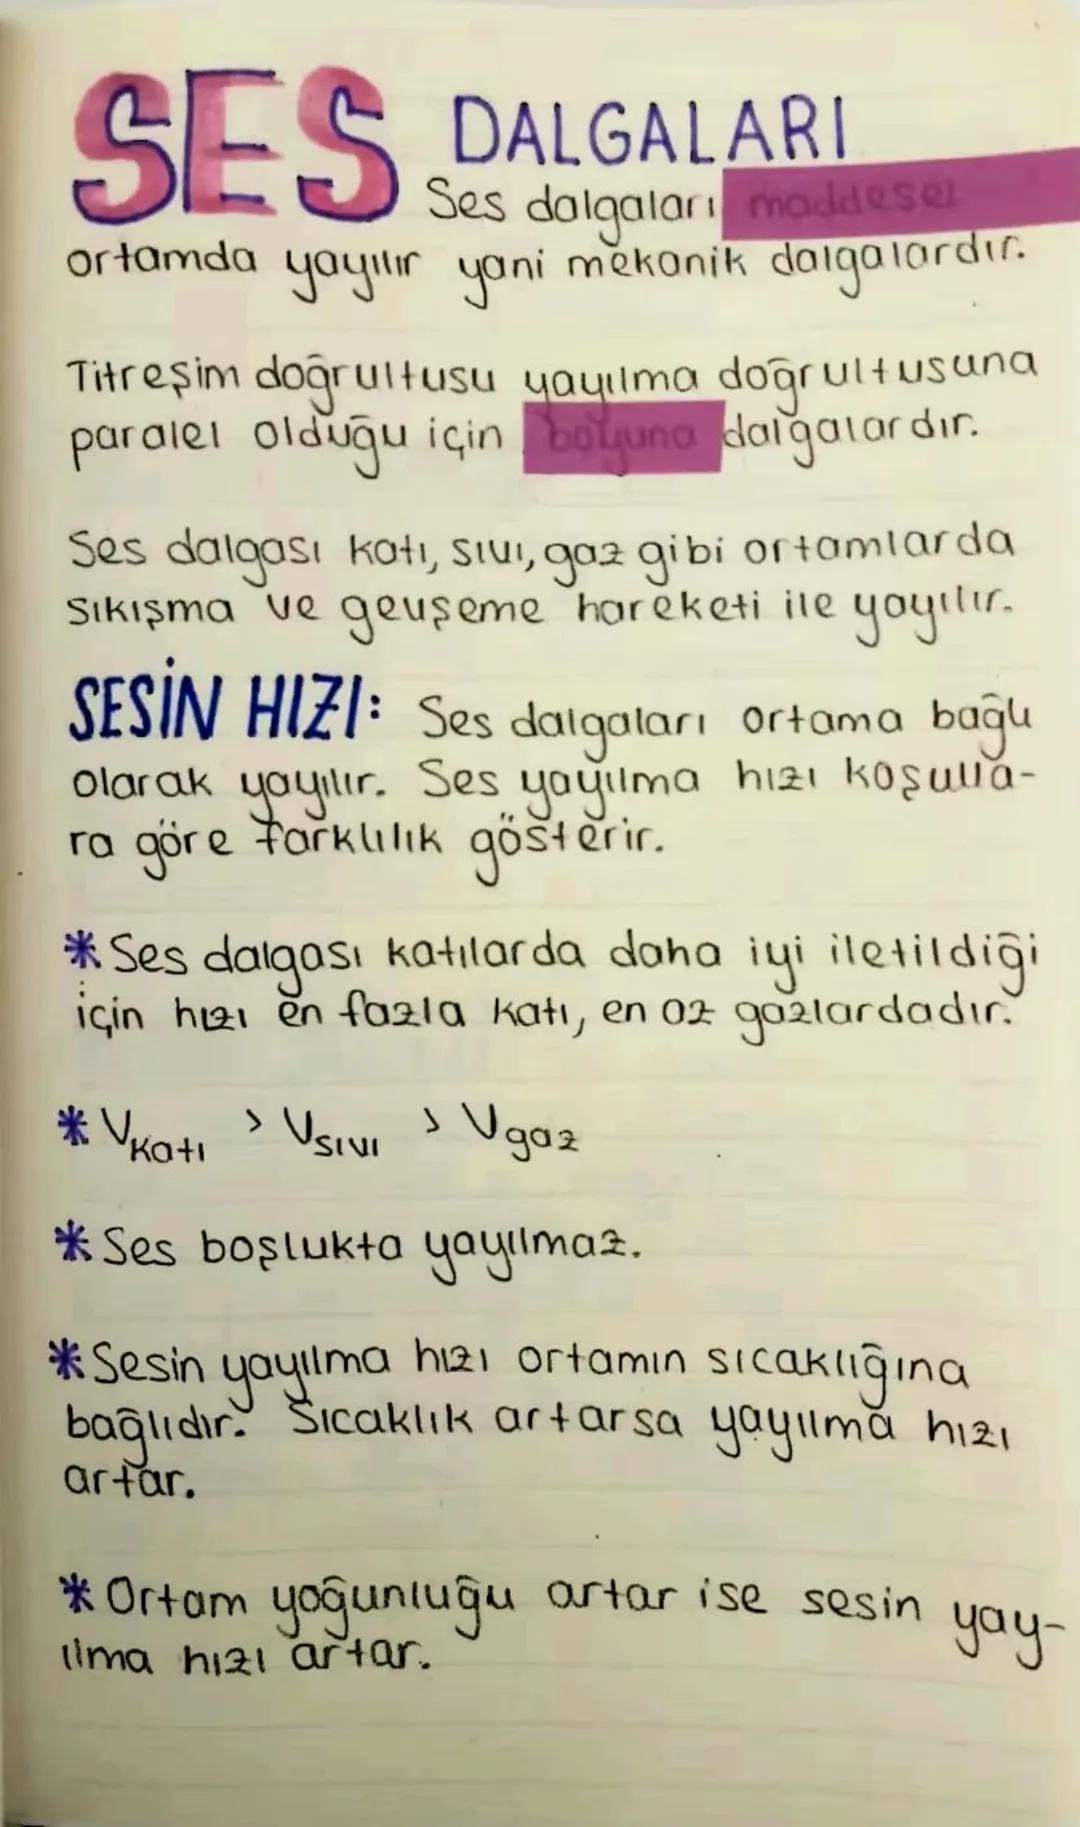 SES DALGALARI
Ses dalgaları maddesel
ortamda yayılır yani mekanik dalgalardır.
Titreşim doğrultusu yayılma doğrultusuna
paralel olduğu için boyuna dalgalardır.
Ses dalgası katı, sıvı, gaz gibi ortamlarda
sıkışma ve gevşeme hareketi ile yayılır.
SESİN HIZI: Ses dalgaları ortama bağlı
olarak yayılır. Ses yayılma hızı koşulla-
ra göre farklılık gösterir.
* Ses dalgası katılarda daha iyi iletildiği
için hızı en fazla katı, en az gazlardadır.
* Vkatı > Vsıvı > Vgaz
* Ses boşlukta yayılmaz.
* Sesin yayılma hızı ortamın sıcaklığına
bağlıdır. Sıcaklık artarsa yayılma hızı
artar.
* Ortam yoğunluğu artar ise sesin yay-
ılma hızı artar.